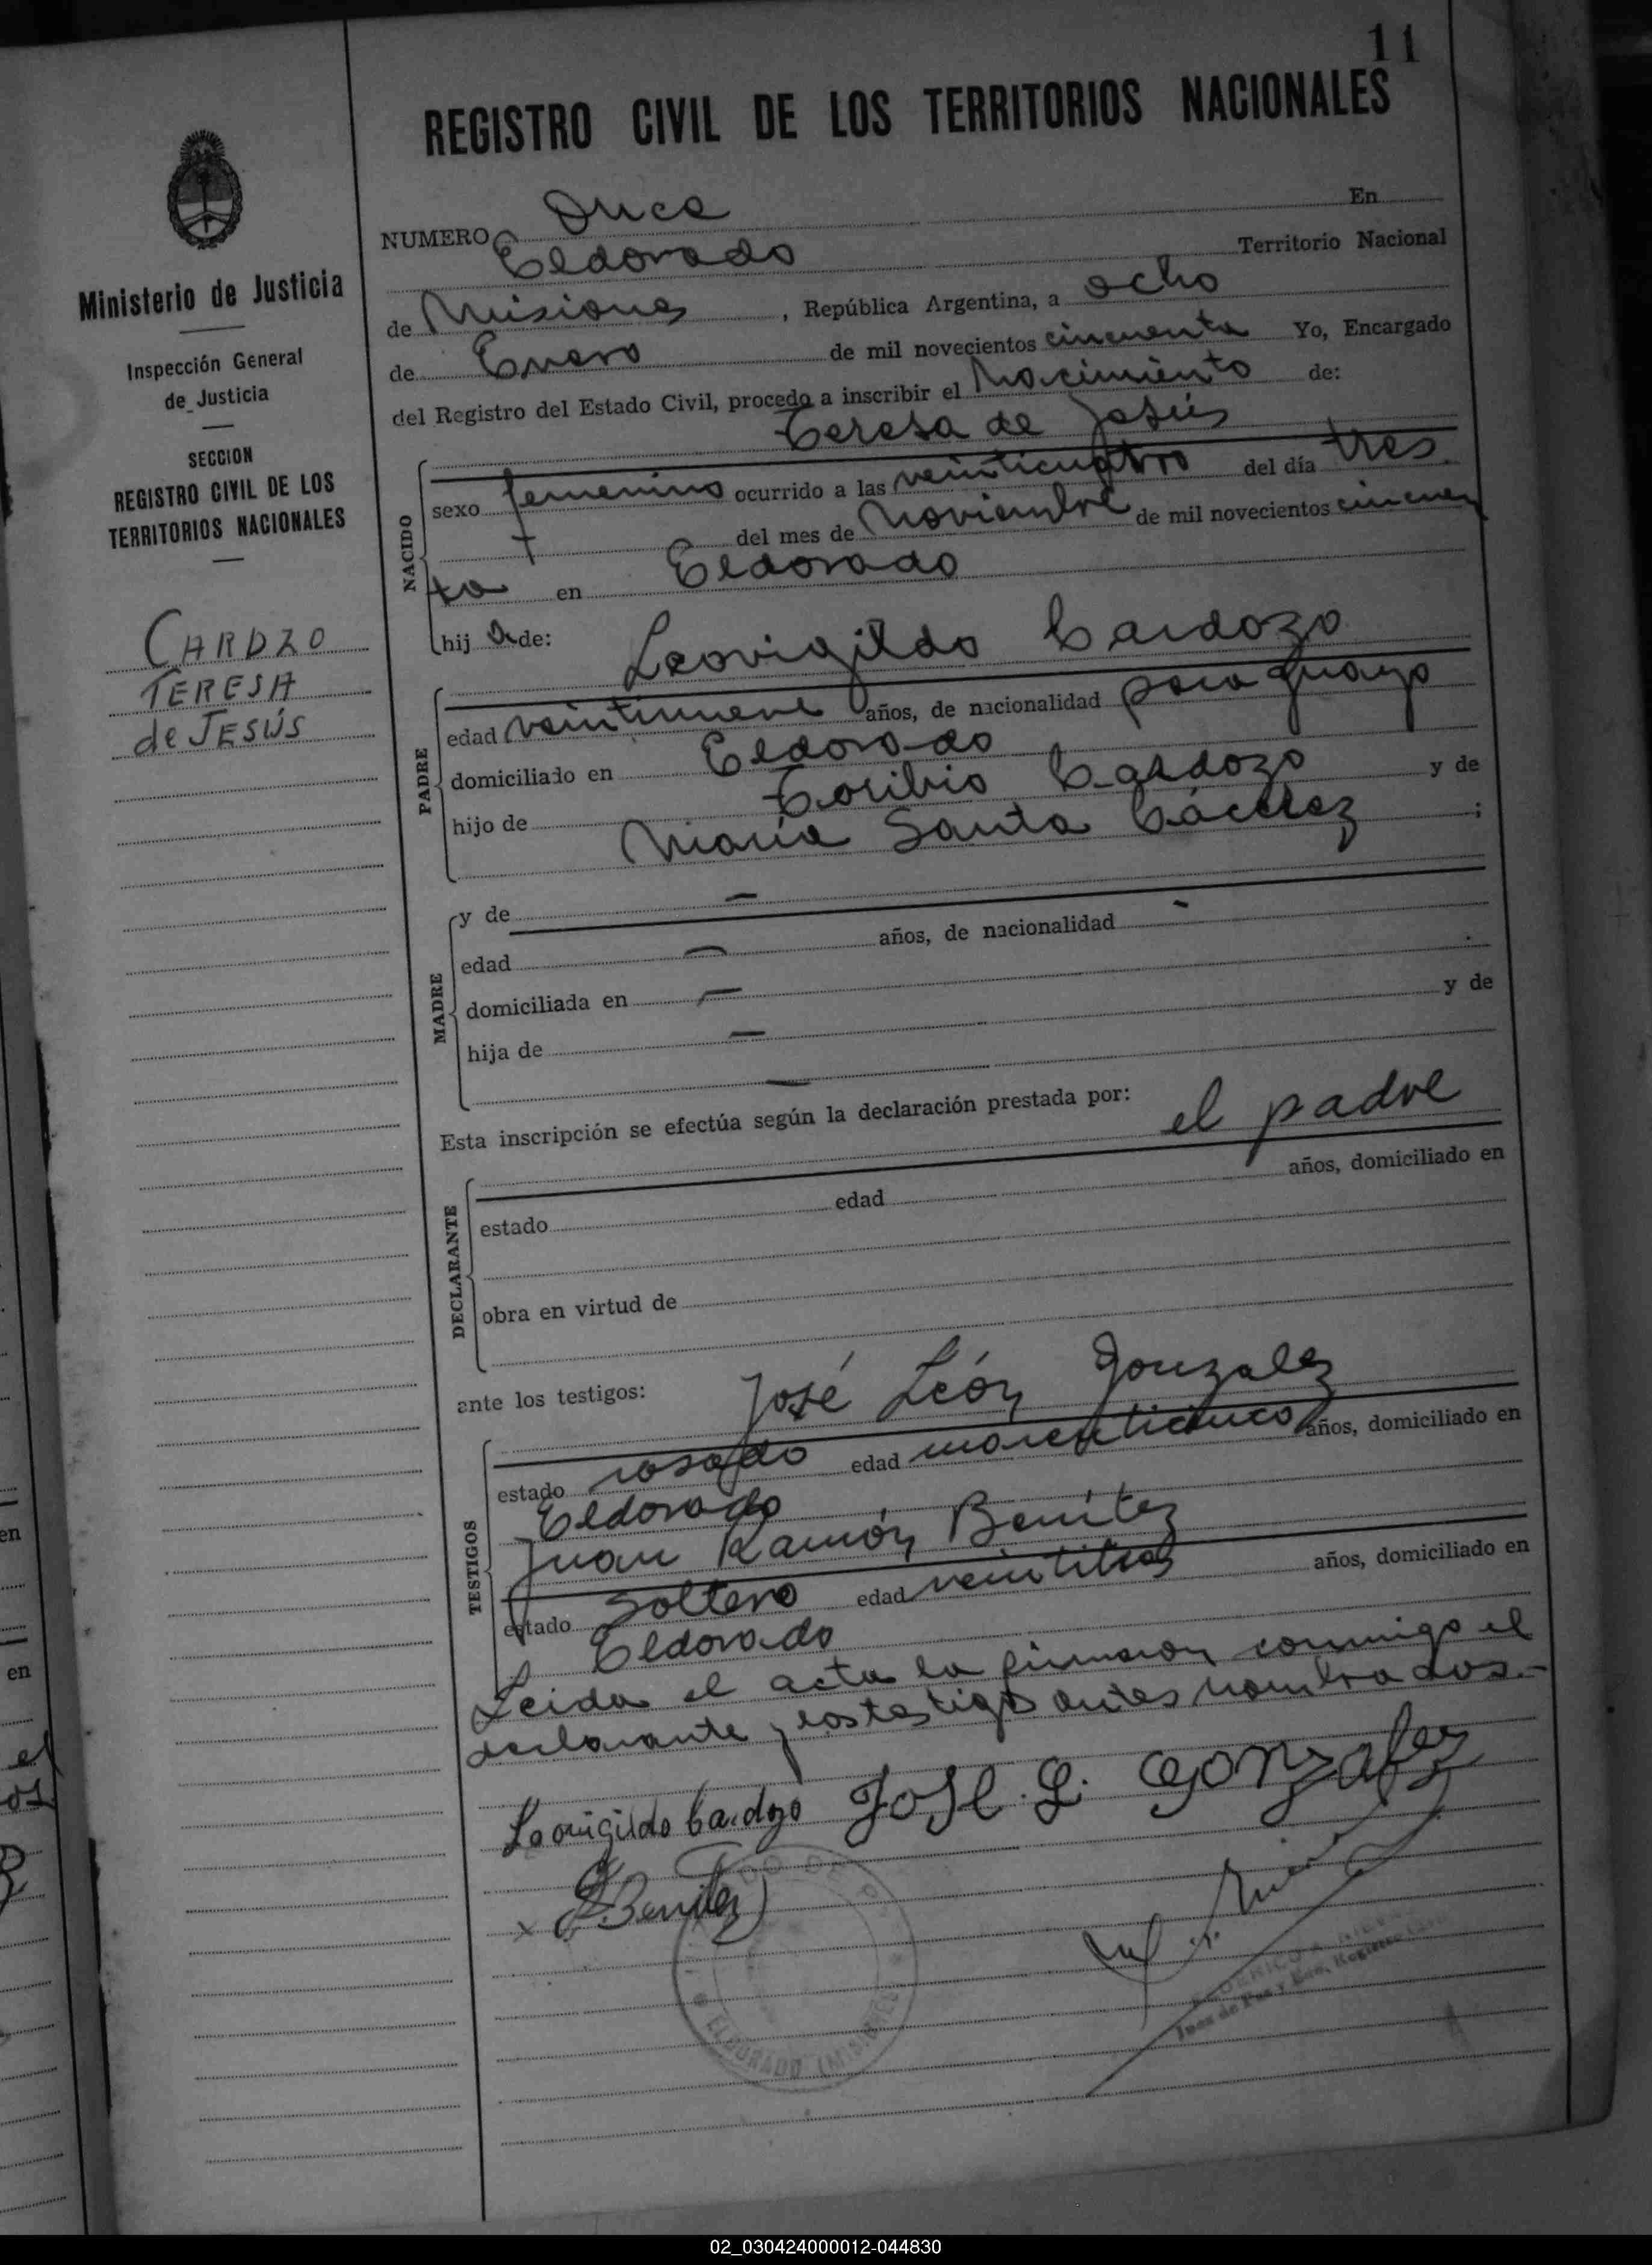 11
REGISTRO CIVIL DE LOS TERRITORIOS NACIONALES
Ministerio de Justicia
Inspección General
de Justicia
SECCION
REGISTRO CIVIL DE LOS
TERRITORIOS NACIONALES
CARDZO
TERESA
de JESÚS
NUMERO Once En
Eldorado Territorio Nacional
de Misiones, República Argentina, a ocho
de Enero de mil novecientos cincuenta Yo, Encargado
del Registro del Estado Civil, procedo a inscribir el Nacimiento de:
Teresa de Jesús
NACIDO
sexo femenino ocurrido a las veinticuatro del día tres
del mes de Noviembre de mil novecientos cincuen
ta en Eldorado
hija de: Leovigildo Cardozo
PADRE
edad veintinueve años, de nacionalidad paraguayo
domiciliado en Eldorado
hijo de Toribio Cardozo y de
María Santa Cácerez ;
MADRE
y de —
edad — años, de nacionalidad -
domiciliada en —
hija de — y de
—
Esta inscripción se efectúa según la declaración prestada por:
el padre
DECLARANTE
estado edad años, domiciliado en
obra en virtud de
ante los testigos: José León Gonzalez
TESTIGOS
estado casado edad años, domiciliado en
Eldorado
Juan Ramón Benítez
estado Soltero edad veintitres años, domiciliado en
Eldorado
Leida el acta la firmaron conmigo el
declarante y los testigos antes nombrados.-
Leovigildo Cardozo José L. Gonzalez
x Benitez
ELDORADO (MISIONES)
Juez de Paz y Enc. Registro
en
en
el
os
02_030424000012-044830